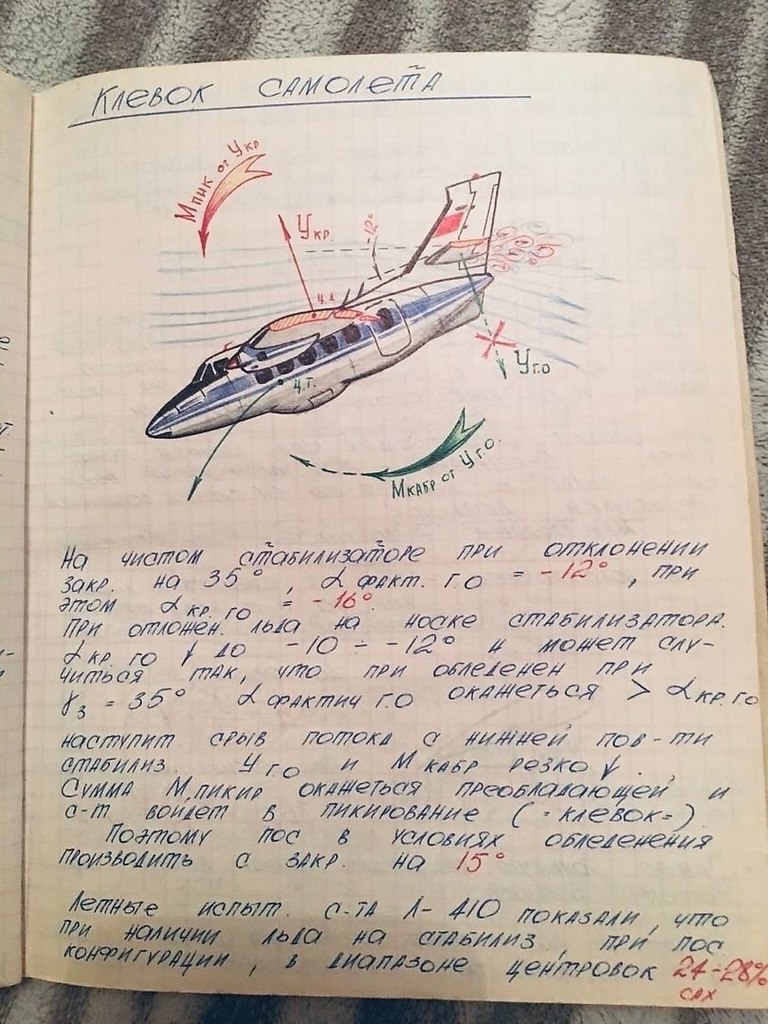 Клевок самолета
Мпик от Укр
Укр.
-12°
ц.д.
ц.т.
Уг.о
Мкабр от Уг.о.
На чистом стабилизаторе при отклонении
закр. на 35°, α факт. г.о = -12°, при
этом α кр. го = -16°.
При отложен. льда на носке стабилизатора.
α кр. го ↓ до -10 ÷ -12° и может слу-
читься так, что при обледенен при
γз = 35° α фактич г.о окажеться > α кр. го
наступит срыв потока с нижней пов-ти
стабилиз. Уг.о и М кабр резко ↓.
Сумма М.пикир окажеться преобладающей и
с-т войдет в пикирование (=клевок=).
Поэтому пос в условиях обледенения
производить с закр. на 15°
Летные испыт. с-та Л-410 показали, что
при наличии льда на стабилиз, при пос
конфигурации, в диапазоне центровок 24-28%
сах